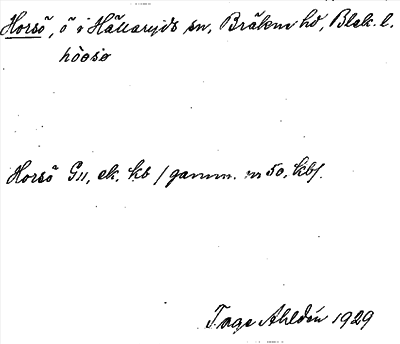 Horsö, ö i Hällaryds sn, Bräkne hd, Blek. l.
hòosø
Horsö G11, ek. kb / gamm. m 50, kb/.
Tage Ahldén 1929